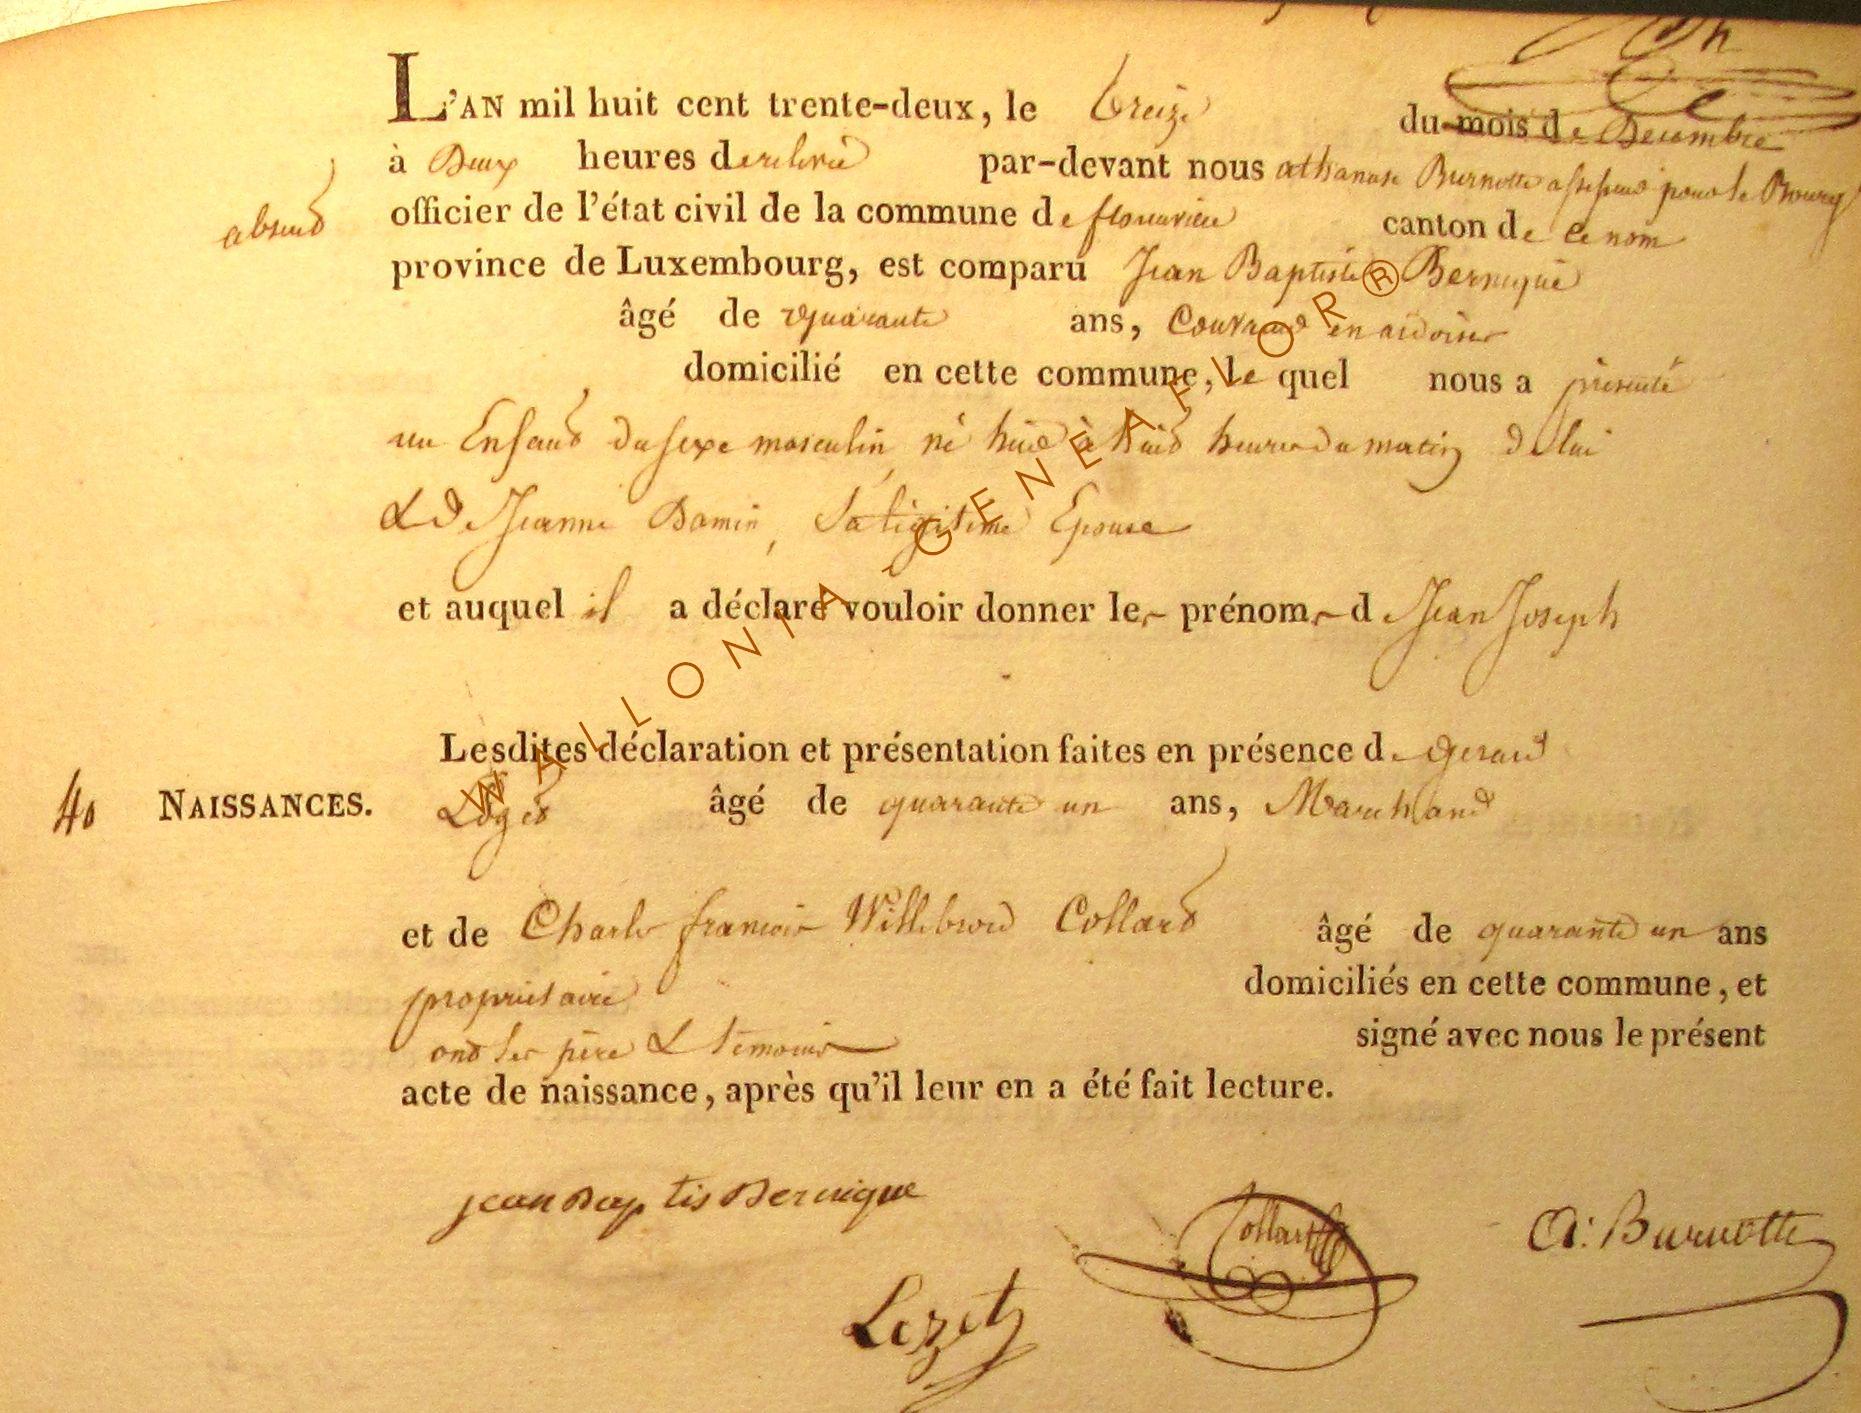 L'AN mil huit cent trente-deux, le treize du mois de Decembre
à Deux heures de relevée par-devant nous athanase Burnotte assesseur pour le Bourg
absent
officier de l'état civil de la commune de florenville canton de ce nom
province de Luxembourg, est comparu Jean Baptiste Bernique
âgé de quarante ans, Couvreur en ardoises
domicilié en cette commune, le quel nous a présenté
un Enfant du sexe masculin, né hier à huit heures du matin de lui
& de Jeanne Damin, Sa légitime Epouse
et auquel il a déclaré vouloir donner les prénoms de Jean Joseph
Lesdites déclaration et présentation faites en présence de Gerard
40 NAISSANCES.
âgé de quarante un ans, Marchand
et de Charles françois Willebrord Collard âgé de quarante un ans
propriétaire domiciliés en cette commune, et
ont les père & témoins signé avec nous le présent
acte de naissance, après qu'il leur en a été fait lecture.
jean Baptis Bernique
Collard
A: Burnotte
Lezet
WALLONIA-GENEAFLOR®